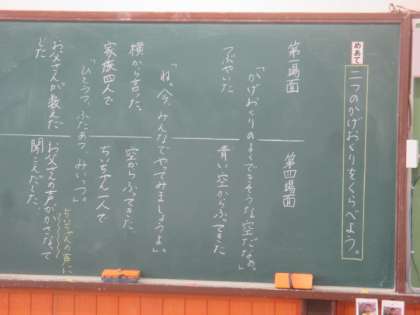 めあて
二つのかげおくりをくらべよう。
第一場面
「かげおくりのよくできそうな空だなあ。」
つぶやいた
「ね。今、みんなでやってみましょうよ。」
横から言った。
家族四人で
「ひとうつ、ふたあつ、みいっつ。」
お父さんが数えだした
第四場面
青い空からふってきた
空からふってきた。
ちいちゃん一人で
お父さんの声がかさなって聞こえだした。
ちいちゃんの声に